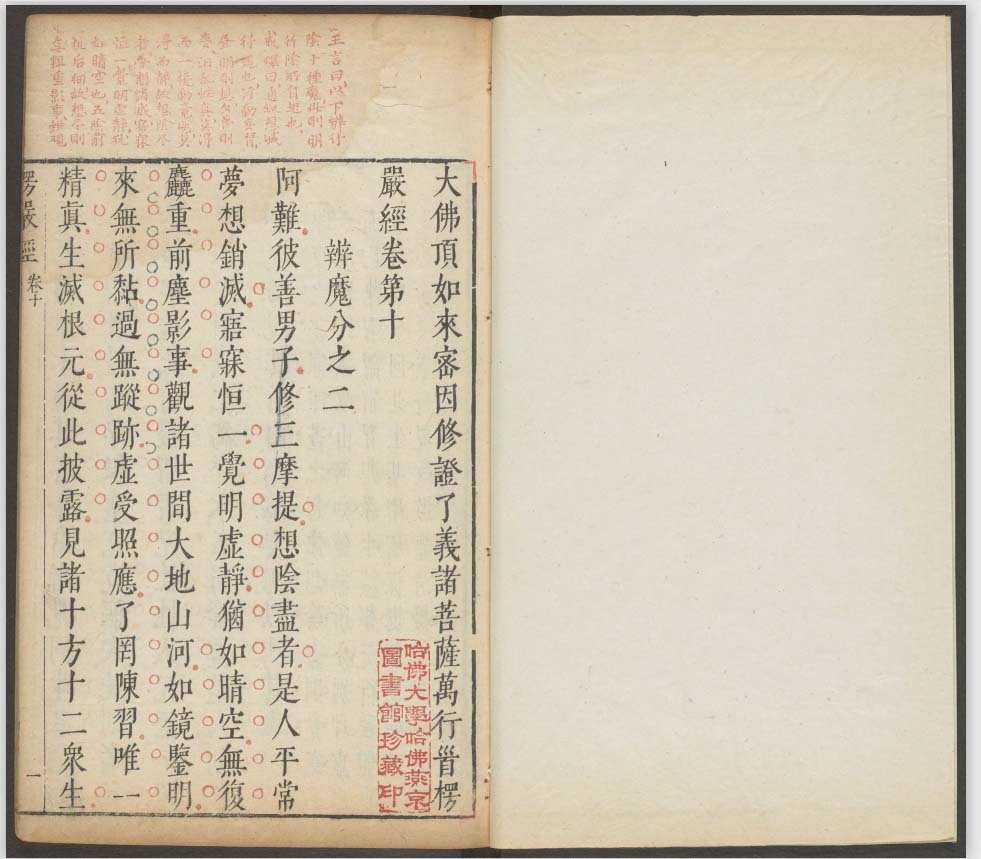 王言曰以下辨行
陰十種魔此則明
行陰
行現也浮動妄習
恒一覺明虛靜猶
如晴空也五陰前
麤重影事
大佛頂如來密因修證了義諸菩薩萬行首楞
嚴經卷第十
辨魔分之二
阿難彼善男子修三摩提想陰盡者是人平常
夢想銷滅寤寐恒一覺明虛靜猶如晴空無復
麤重前塵影事觀諸世間大地山河如鏡鑒明
來無所黏過無蹤跡虛受照應了罔陳習唯一
精真生滅根元從此披露見諸十方十二衆生
楞嚴經 卷十 一
哈佛大學哈佛燕京
圖書館珍藏印